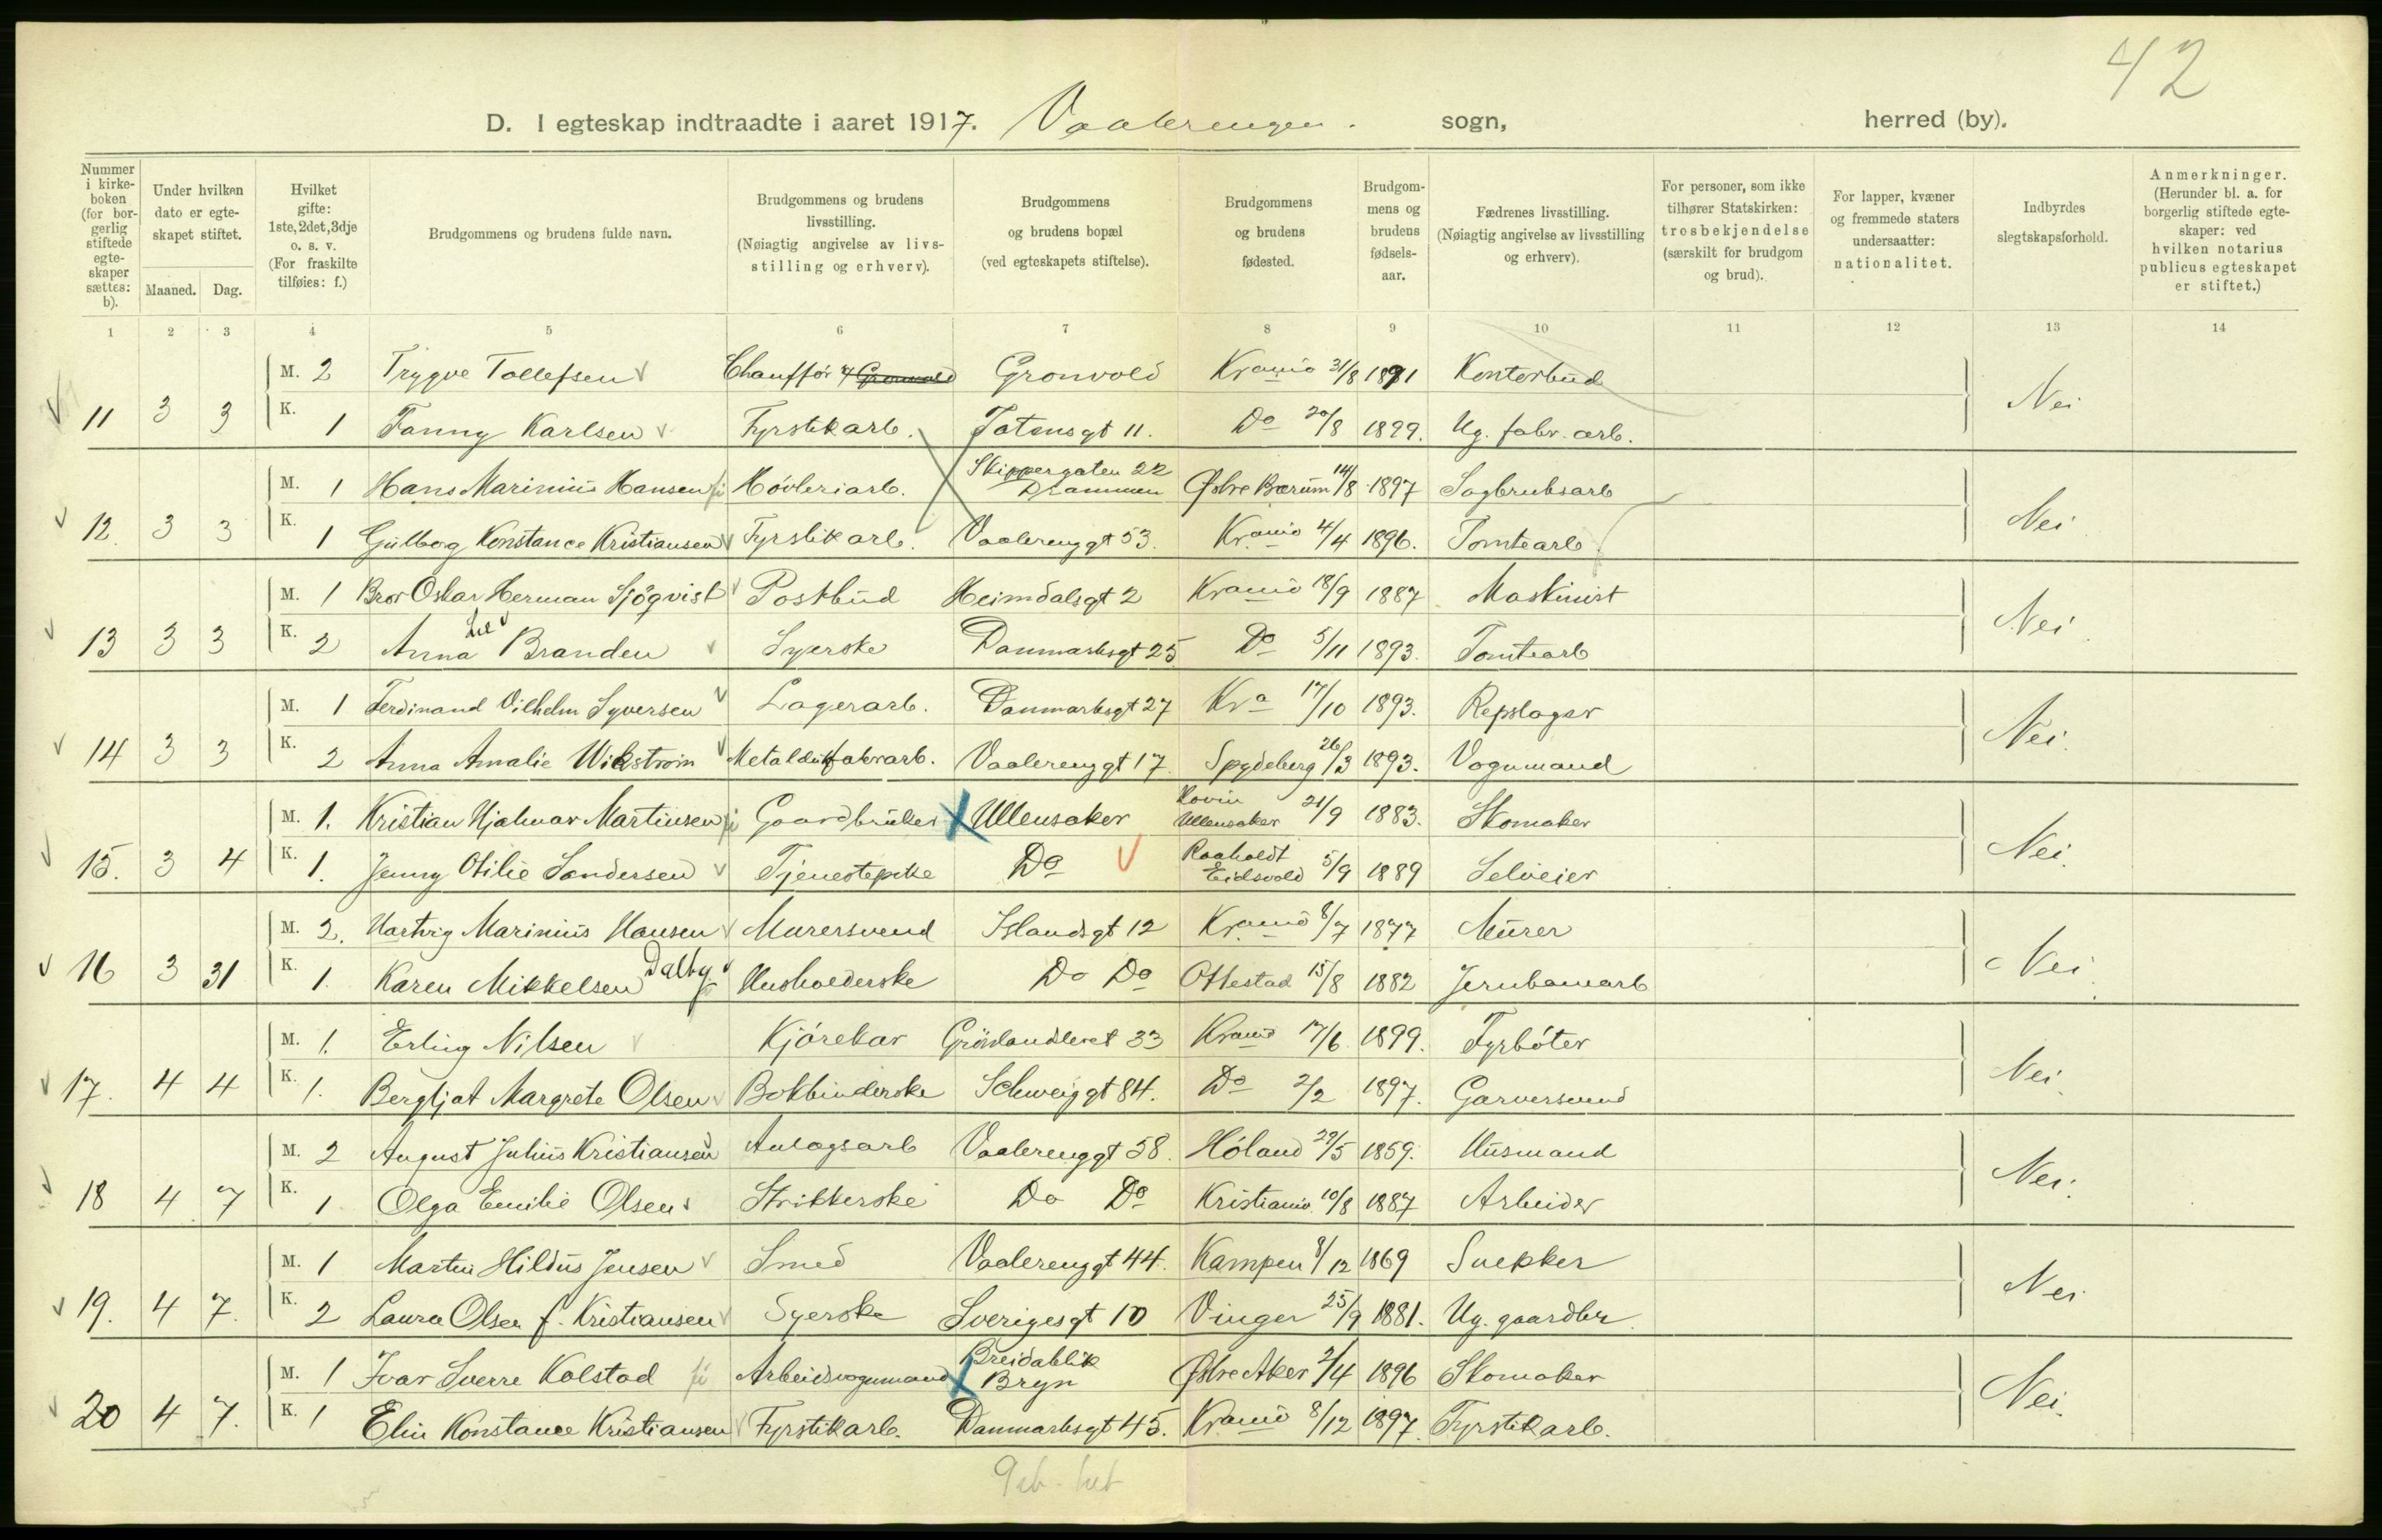 42
D. I egteskap indtraadte i aaret 1917. Vaalerengen. sogn, herred (by).
Nummer i kirke-boken (for bor-gerlig stiftede egte-skaper sættes: b).
Under hvilken dato er egte-skapet stiftet.
Maaned. Dag.
Hvilket gifte: 1ste, 2det, 3dje o. s. v. (For fraskilte tilføies: f.)
Brudgommens og brudens fulde navn.
Brudgommens og brudens livsstilling. (Nøiagtig angivelse av livs-stilling og erhverv).
Brudgommens og brudens bopæl (ved egteskapets stiftelse).
Brudgommens og brudens fødested.
Brudgom-mens og brudens fødsels-aar.
Fædrenes livsstilling. (Nøiagtig angivelse av livsstilling og erhverv).
For personer, som ikke tilhører Statskirken: trosbekjendelse (særskilt for brudgom og brud).
For lapper, kvæner og fremmede staters undersaatter: nationalitet.
Indbyrdes slegtskapsforhold.
Anmerkninger. (Herunder bl. a. for borgerlig stiftede egte-skaper: ved hvilken notarius publicus egteskapet er stiftet.)
1 2 3 4 5 6 7 8 9 10 11 12 13 14
M. 2 Trygve Tollefsen Chauffør Gronvold Gronvold Krania 31/8 1891 Kontorbud
11 3 3 K. 1 Fanny Karlsen Fyrstikarb. Totensgt 11. Do 20/8 1899. Ug. fabr. arb. Nei
M. 1 Hans Marinius Hansen Høvleriarb. Skippergaten 22 Drammen Østre Bærum 14/8 1897 Sagbruksarb
12. 3 3 K. 1 Gulbog Konstance Kristiansen Fyrstikarb. Vaalerenggt 53. Krania 4/4 1896. Tomtearb. Nei
M. 1 Bror Oskar Herman Sjöqvist Postbud Heimdalsgt 2 Krania 18/9 1887 Maskinist
13 3 3 K. 2 Anna Branden Syerske Danmarksgt 25 Do 5/11 1893. Tomtearb Nei
M. 1 Ferdinand Vilhelm Syversen Lagerarb. Danmarksgt 27 Kra 17/10 1893. Repslager
14 3 3 K. 2 Anna Amalie Wickstrøm Vaalerenggt 17. Spydeberg 26/3 1893. Vognmand Nei.
M. 1. Kristian Hjalmar Martinsen Gaardbruker Ullensaker Hovin Ullensaker 21/9 1883. Skomaker
15. 3 4 K. 1. Jenny Otilie Sandersen Tjenestepike Do Raaholdt Eidsvold 5/9 1889 Selveier Nei.
M. 2. Hartvig Marinius Hansen Murersvend Islandsgt 12 Krania 8/7 1877 Murer
16 3 31 K. 1. Karen Mikkelsen Dalby Husholderske Do Do Ottestad 15/8 1882 Jernbanearb Nei.
M. 1. Erling Nilsen Kjørekar Grønlandleret 33 Krania 17/6 1899. Fyrbøter
17. 4 4 K. 1. Bergljot Margrete Olsen Bokbinderske Schweiggt 84. Do 2/2 1897. Garversvend Nei.
M. 2 August Julius Kristiansen Anlagsarb Vaalerenggt 58. Høland 29/5 1859. Husmand
18 4 7 K. 1 Olga Emilie Olsen Strikkerske Do Do Kristiania 10/8 1887 Arbeider Nei.
M. 1 Martin Hildus Jensen Smed Vaalerenggt 44. Kampen 8/12 1869 Snekker
19. 4 7. K. 2 Laura Olsen f. Kristiansen Syerske Sverigesgt 10 Vinger 25/9 1881. Ug. gaardbr. Nei
M. 1 Ivar Sverre Kolstad Arbeidsvognmand Breidablik Bryn Østre Aker 2/4 1896 Skomaker
20 4 7. K. 1 Elin Konstance Kristiansen Fyrstikarb. Danmarksgt 45. Krania 8/12 1897. Fyrstikarb. Nei.